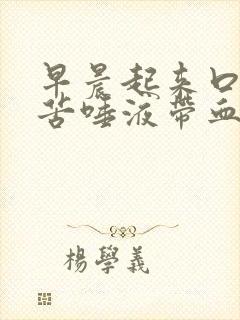 早晨起来口
苦唾液带血
楊學義